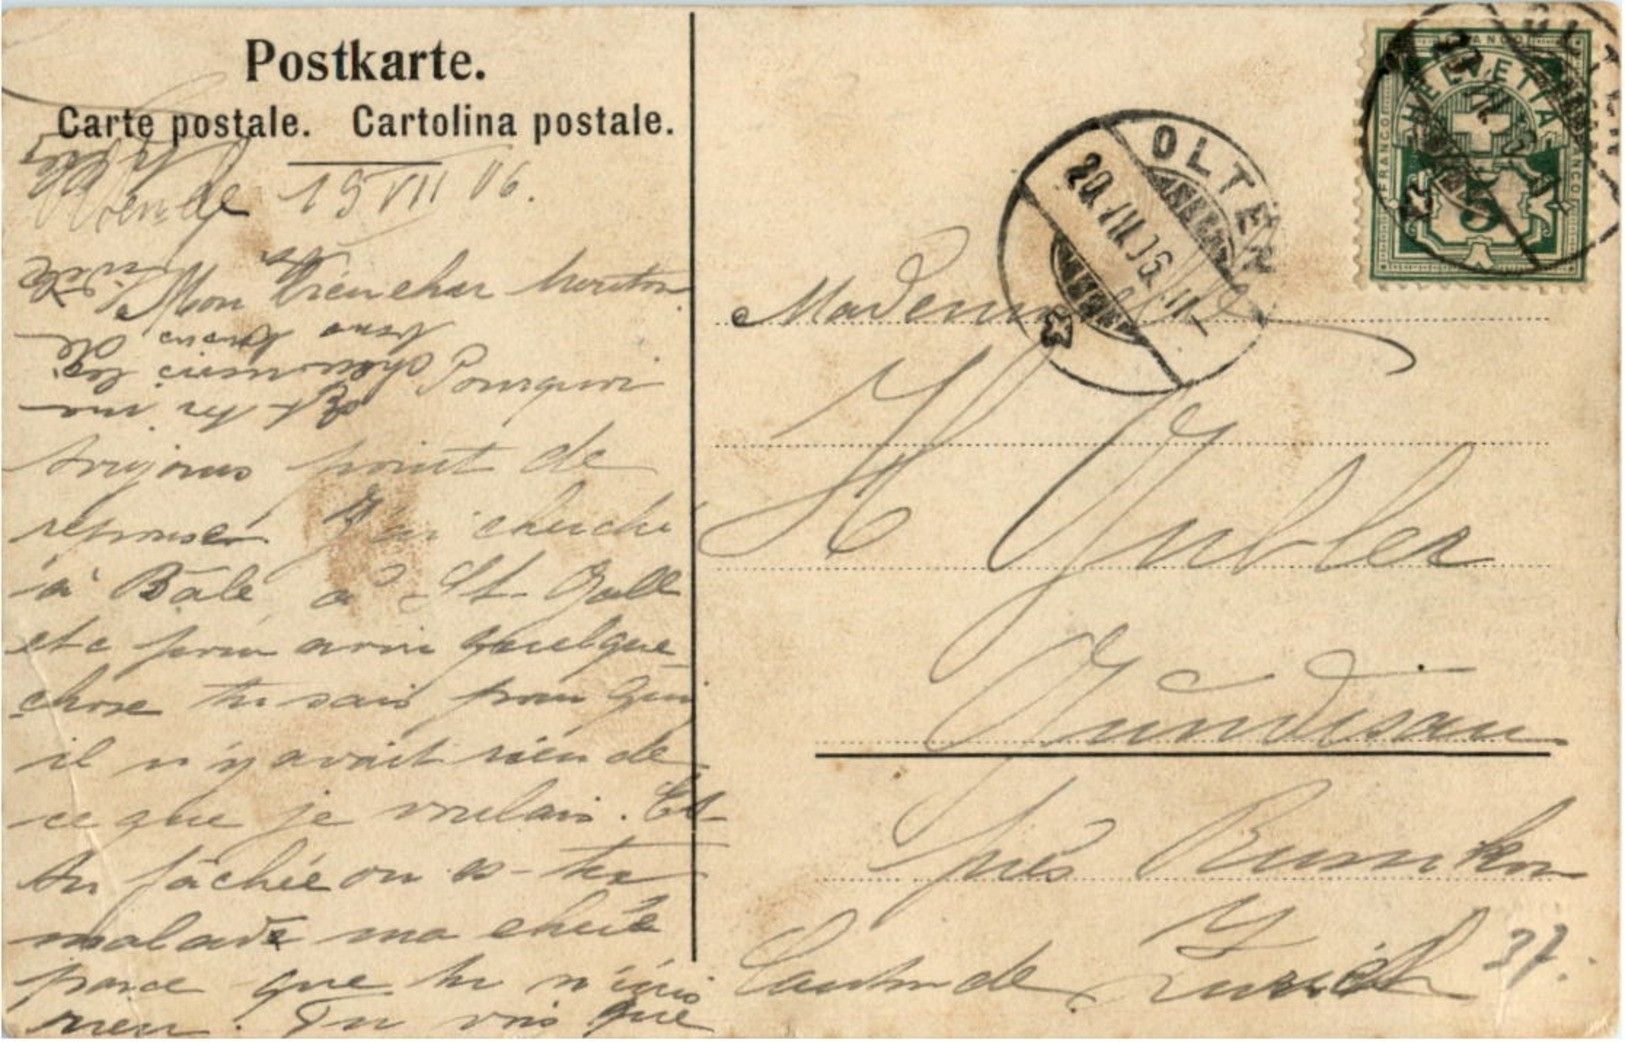 Postkarte.
Carte postale. Cartolina postale.
19 VII 06.
Mon bien cher
Pourquoi
toujours point de
réponse. J'ai cherché
à Bâle à St-Gall
etc pour avoir quelque
chose tu sais pour qui
il n'y avait rien de
ce que je voulais. Es-
tu fâchée ou es-tu
malade ma chérie
parce que tu n'écris
rien. Tu vois que
HELVETIA
FRANCO
FRANCO
FRANCO
5
OLTEN
20.VII.06.11-
OLTEN
Mademoiselle
H Gubler
Gündisau
près Rumikon
Canton de Zurich
37.